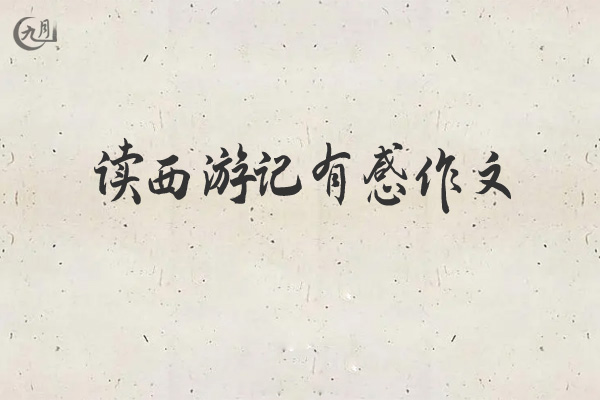 九月
读西游记有感作文